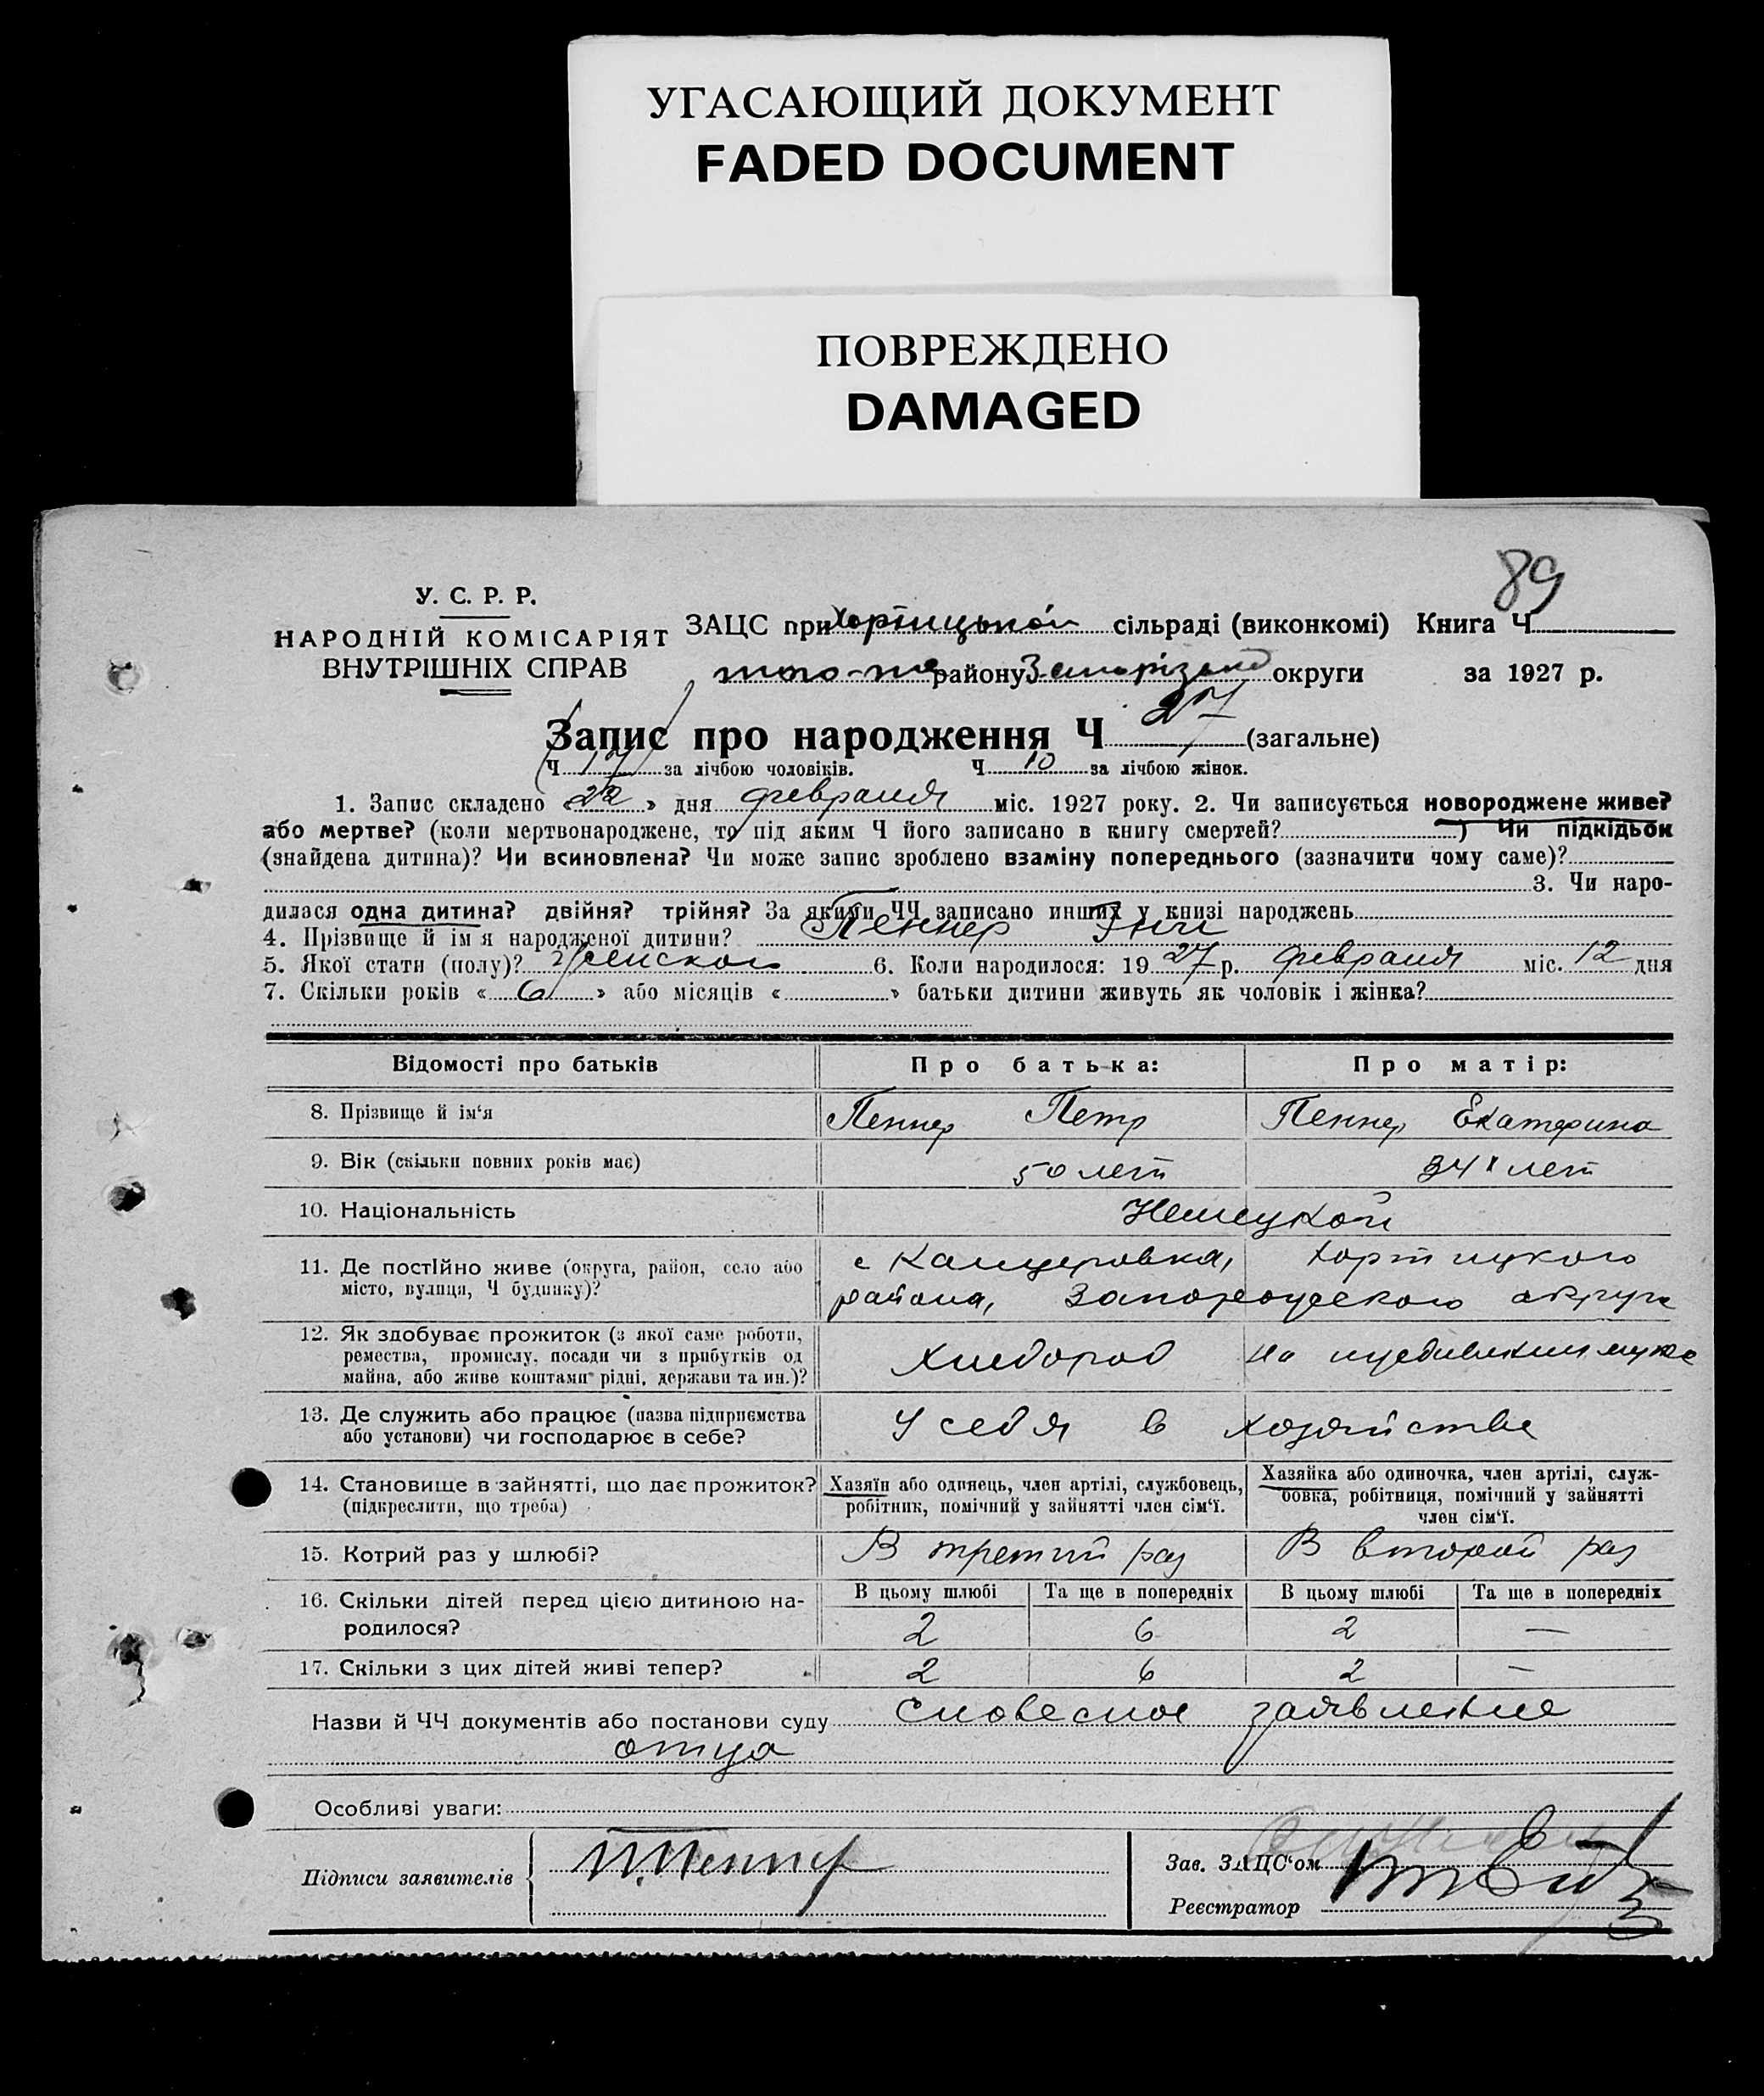 УГАСАЮЩИЙ ДОКУМЕНТ
FADED DOCUMENT
ПОВРЕЖДЕНО
DAMAGED
89
У. С. Р. Р.
НАРОДНІЙ КОМІСАРІЯТ
ВНУТРІШНІХ СПРАВ
ЗАЦС при Хортицькой сільраді (виконкомі) Книга Ч
того-же району Запорізькой округи за 1927 р.
Запис про народження Ч 27 (загальне)
Ч 17 за лічбою чоловіків. Ч 10 за лічбою жінок.
1. Запис складено « 22 » дня февраля міс. 1927 року. 2. Чи записується новороджене живе?
або мертве? (коли мертвонароджене, то під яким Ч його записано в книгу смертей? ) Чи підкідьок
(знайдена дитина)? Чи всиновлена? Чи може запис зроблено взаміну попереднього (зазначити чому саме)?
3. Чи наро-
дилася одна дитина? двійня? трійня? За якими ЧЧ записано инших у книзі народжень
4. Прізвище й ім я народженої дитини? Пеннер
5. Якої стати (полу)? Женского 6. Коли народилося: 19 27 р. февраля міс. 12 дня
7. Скільки років « 6 » або місяців « » батьки дитини живуть як чоловік і жінка?
Відомості про батьків Про батька: Про матір:
8. Прізвище й ім‘я Пеннер Петр Пеннер Екатерина
9. Вік (скільки повних років має) 50 лет 34 лет
10. Національність Немецкой
11. Де постійно живе (округа, район, село або с Канцеровка, Хортицкого
місто, вулиця, Ч будинку)? района, Запорожского округа
12. Як здобуває прожиток (з якої саме роботи,
ремества, промислу, посади чи з прибутків од Хлебороб На иждивении мужа
майна, або живе коштами рідні, держави та ин.)?
13. Де служить або працює (назва підприємства У себя в хозяйстве
або установи) чи господарює в себе?
14. Становище в зайнятті, що дає прожиток? Хазяїн або одинець, член артілі, службовець, Хазяйка або одиночка, член артілі, служ-
(підкреслити, що треба) робітник, помічний у зайнятті член сім‘ї. бовка, робітниця, помічний у зайнятті
член сім‘ї.
15. Котрий раз у шлюбі? В третий раз В второй раз
16. Скільки дітей перед цією дитиною на- В цьому шлюбі Та ще в попередніх В цьому шлюбі Та ще в попередніх
родилося? 2 6 2 —
17. Скільки з цих дітей живі тепер? 2 6 2 —
Назви й ЧЧ документів або постанови суду Словесное заявление
отца
Особливі уваги:
Підписи заявителів П. Пеннер
Зав. ЗАЦС‘ом
Реєстратор